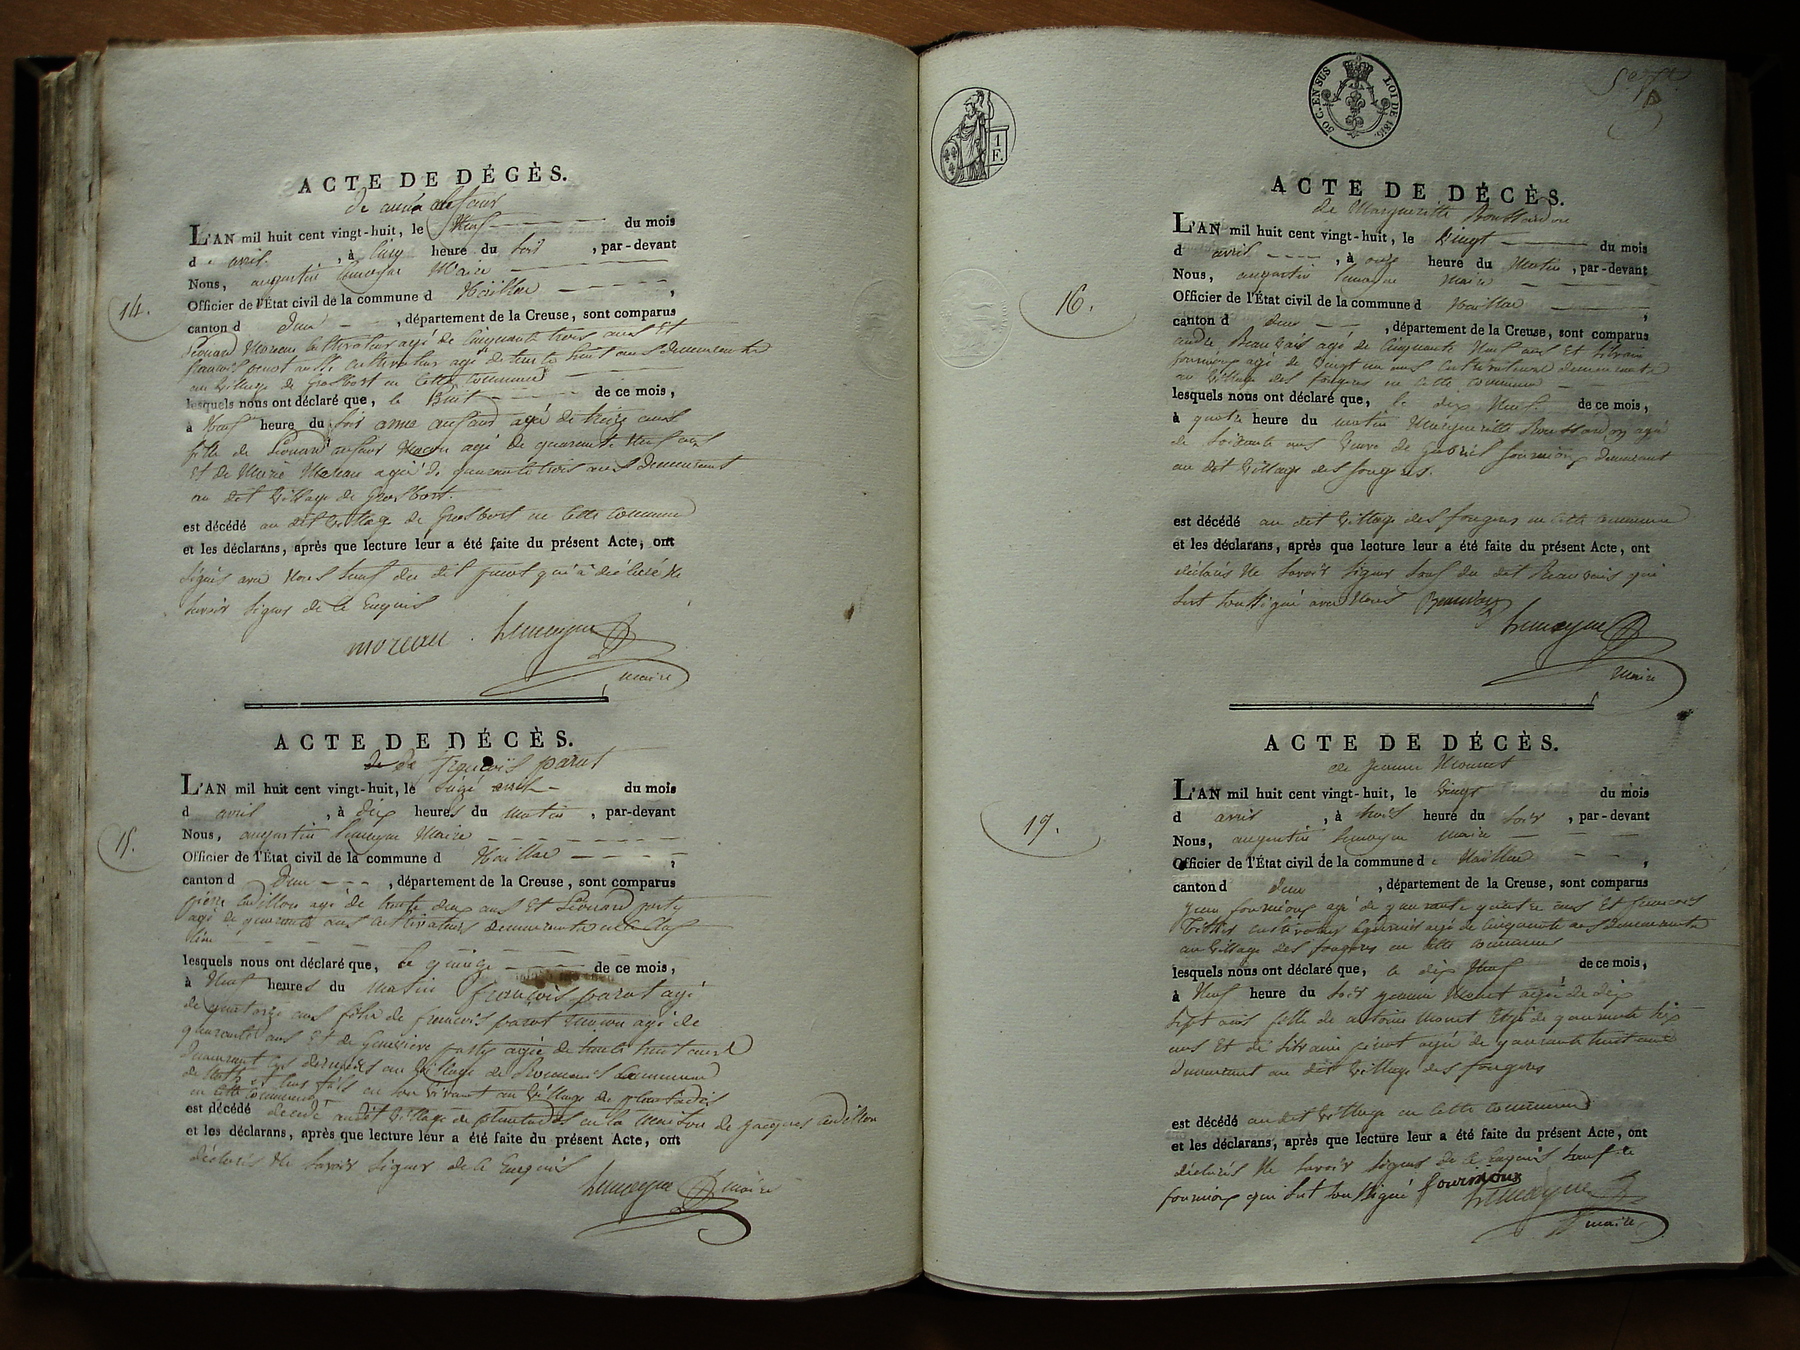 ACTE DE DÉCÈS.
de anna aufaur
L'AN mil huit cent vingt-huit, le Neuf du mois
d avril, à Cinq heure du Soir, par-devant
Nous, augustin Lemoyne Maire
Officier de l'État civil de la commune d Naillac,
14. canton d Dun, département de la Creuse, sont comparus
Léonard Moreau Cultivateur agé de Cinquante trois ans Et
cultivateur agé de trente huit ans demeurants
au Village de Grosbost en Cette Commune
lesquels nous ont déclaré que, le huit de ce mois,
à Neuf heure du Soir anne aufaur agé de treize ans
fille de Léonard aufaur Maçon agé de quarante Neuf ans
Et de Marie Moreau agée de quarante trois ans demeurant
au dit Village de Grosbost.
est décédé au dit Village de Grosbost en Cette Commune
et les déclarans, après que lecture leur a été faite du présent Acte, ont
Signés avec Nous Sauf du dit qui a déclaré Ne
Savoir Signer de Ce Enquis
moreau Lemoyne
maire
ACTE DE DÉCÈS.
de françois parot
L'AN mil huit cent vingt-huit, le Seize du mois
d avril, à dix heures du matin, par-devant
Nous, augustin Lemoyne Maire
15. Officier de l'État civil de la commune d Naillac,
canton d Dun, département de la Creuse, sont comparus
agé de trente deux ans Et Léonard
agé de quarante ans cultivateurs demeurants
lesquels nous ont déclaré que, le quinze de ce mois,
à Neuf heures du matin françois parot agé
de quatorze ans fils de françois parot Maçon agé de
quarante ans Et de Geneviève agée de trente huit ans
demeurant au Village de Commune
de au Village de
en Cette Commune
est décédé décédé au dit Village de en la Maison de Jacques
et les déclarans, après que lecture leur a été faite du présent Acte, ont
déclarés Ne Savoir Signer de Ce Enquis
Lemoyne maire
1 F.
50 C. EN SUS
LOI DE 1816.
ACTE DE DÉCÈS.
de Marguerite
L'AN mil huit cent vingt-huit, le Vingt du mois
d avril, à onze heure du Matin, par-devant
Nous, augustin Lemoyne Maire
16. Officier de l'État civil de la commune d Naillac,
canton d Dun, département de la Creuse, sont comparus
andré Beauvais agé de Cinquante Neuf ans Et Silvain
fournioux agé de Vingt un ans Cultivateurs demeurants
au Village des fougres en Cette Commune
lesquels nous ont déclaré que, le dix Neuf de ce mois,
à quatre heure du matin Marguerite agé
de Soixante ans Veuve de Gabriel fournioux demeurant
au dit Village des fougres.
est décédé au dit Village des fougres en Cette Commune
et les déclarans, après que lecture leur a été faite du présent Acte, ont
déclarés Ne Savoir Signer Sauf du dit Beauvais qui
Sest Soussigné avec Nous Beauvais
Lemoyne
Maire
ACTE DE DÉCÈS.
de Jeanne Monet
L'AN mil huit cent vingt-huit, le Vingt du mois
d avril, à trois heure du Soir, par-devant
17. Nous, augustin Lemoyne maire
Officier de l'État civil de la commune de Naillac,
canton d Dun, département de la Creuse, sont comparus
Jean fournioux agé de quarante quatre ans Et françois
agé de Cinquante ans demeurants
au Village des fougres en Cette Commune
lesquels nous ont déclaré que, le dix Neuf de ce mois,
à Neuf heure du Soir Jeanne Monet agée de dix
Sept ans fille de antoine Monet agé de quarante Six
ans Et de Silvaine agée de quarante huit ans
demeurant au dit Village des fougres
est décédé au dit Village en Cette Commune
et les déclarans, après que lecture leur a été faite du présent Acte, ont
déclarés Ne Savoir Signer de Ce Enquis Sauf le
fournioux qui Sest Soussigné fournioux
Lemoyne
maire